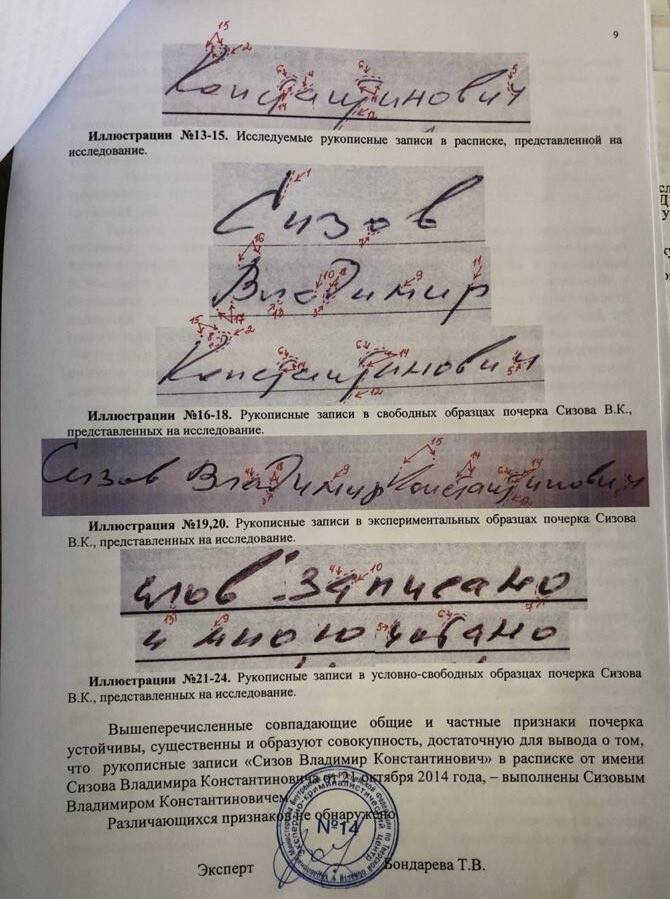 9
Константинович
Иллюстрации №13-15. Исследуемые рукописные записи в расписке, представленной на
исследование.
Сизов
Владимир
Константинович
Иллюстрации №16-18. Рукописные записи в свободных образцах почерка Сизова В.К.,
представленных на исследование.
Сизов Владимир Константинович
Иллюстрация №19,20. Рукописные записи в экспериментальных образцах почерка Сизова
В.К., представленных на исследование.
слов записано
и мною
Иллюстрации №21-24. Рукописные записи в условно-свободных образцах почерка Сизова
В.К., представленных на исследование.
Вышеперечисленные совпадающие общие и частные признаки почерка
устойчивы, существенны и образуют совокупность, достаточную для вывода о том,
что рукописные записи «Сизов Владимир Константинович» в расписке от имени
Сизова Владимира Константиновича от 21 октября 2014 года, – выполнены Сизовым
Владимиром Константиновичем.
Различающихся признаков не обнаружено.
№14
Экспертно-криминалистический центр
Эксперт Бондарева Т.В.